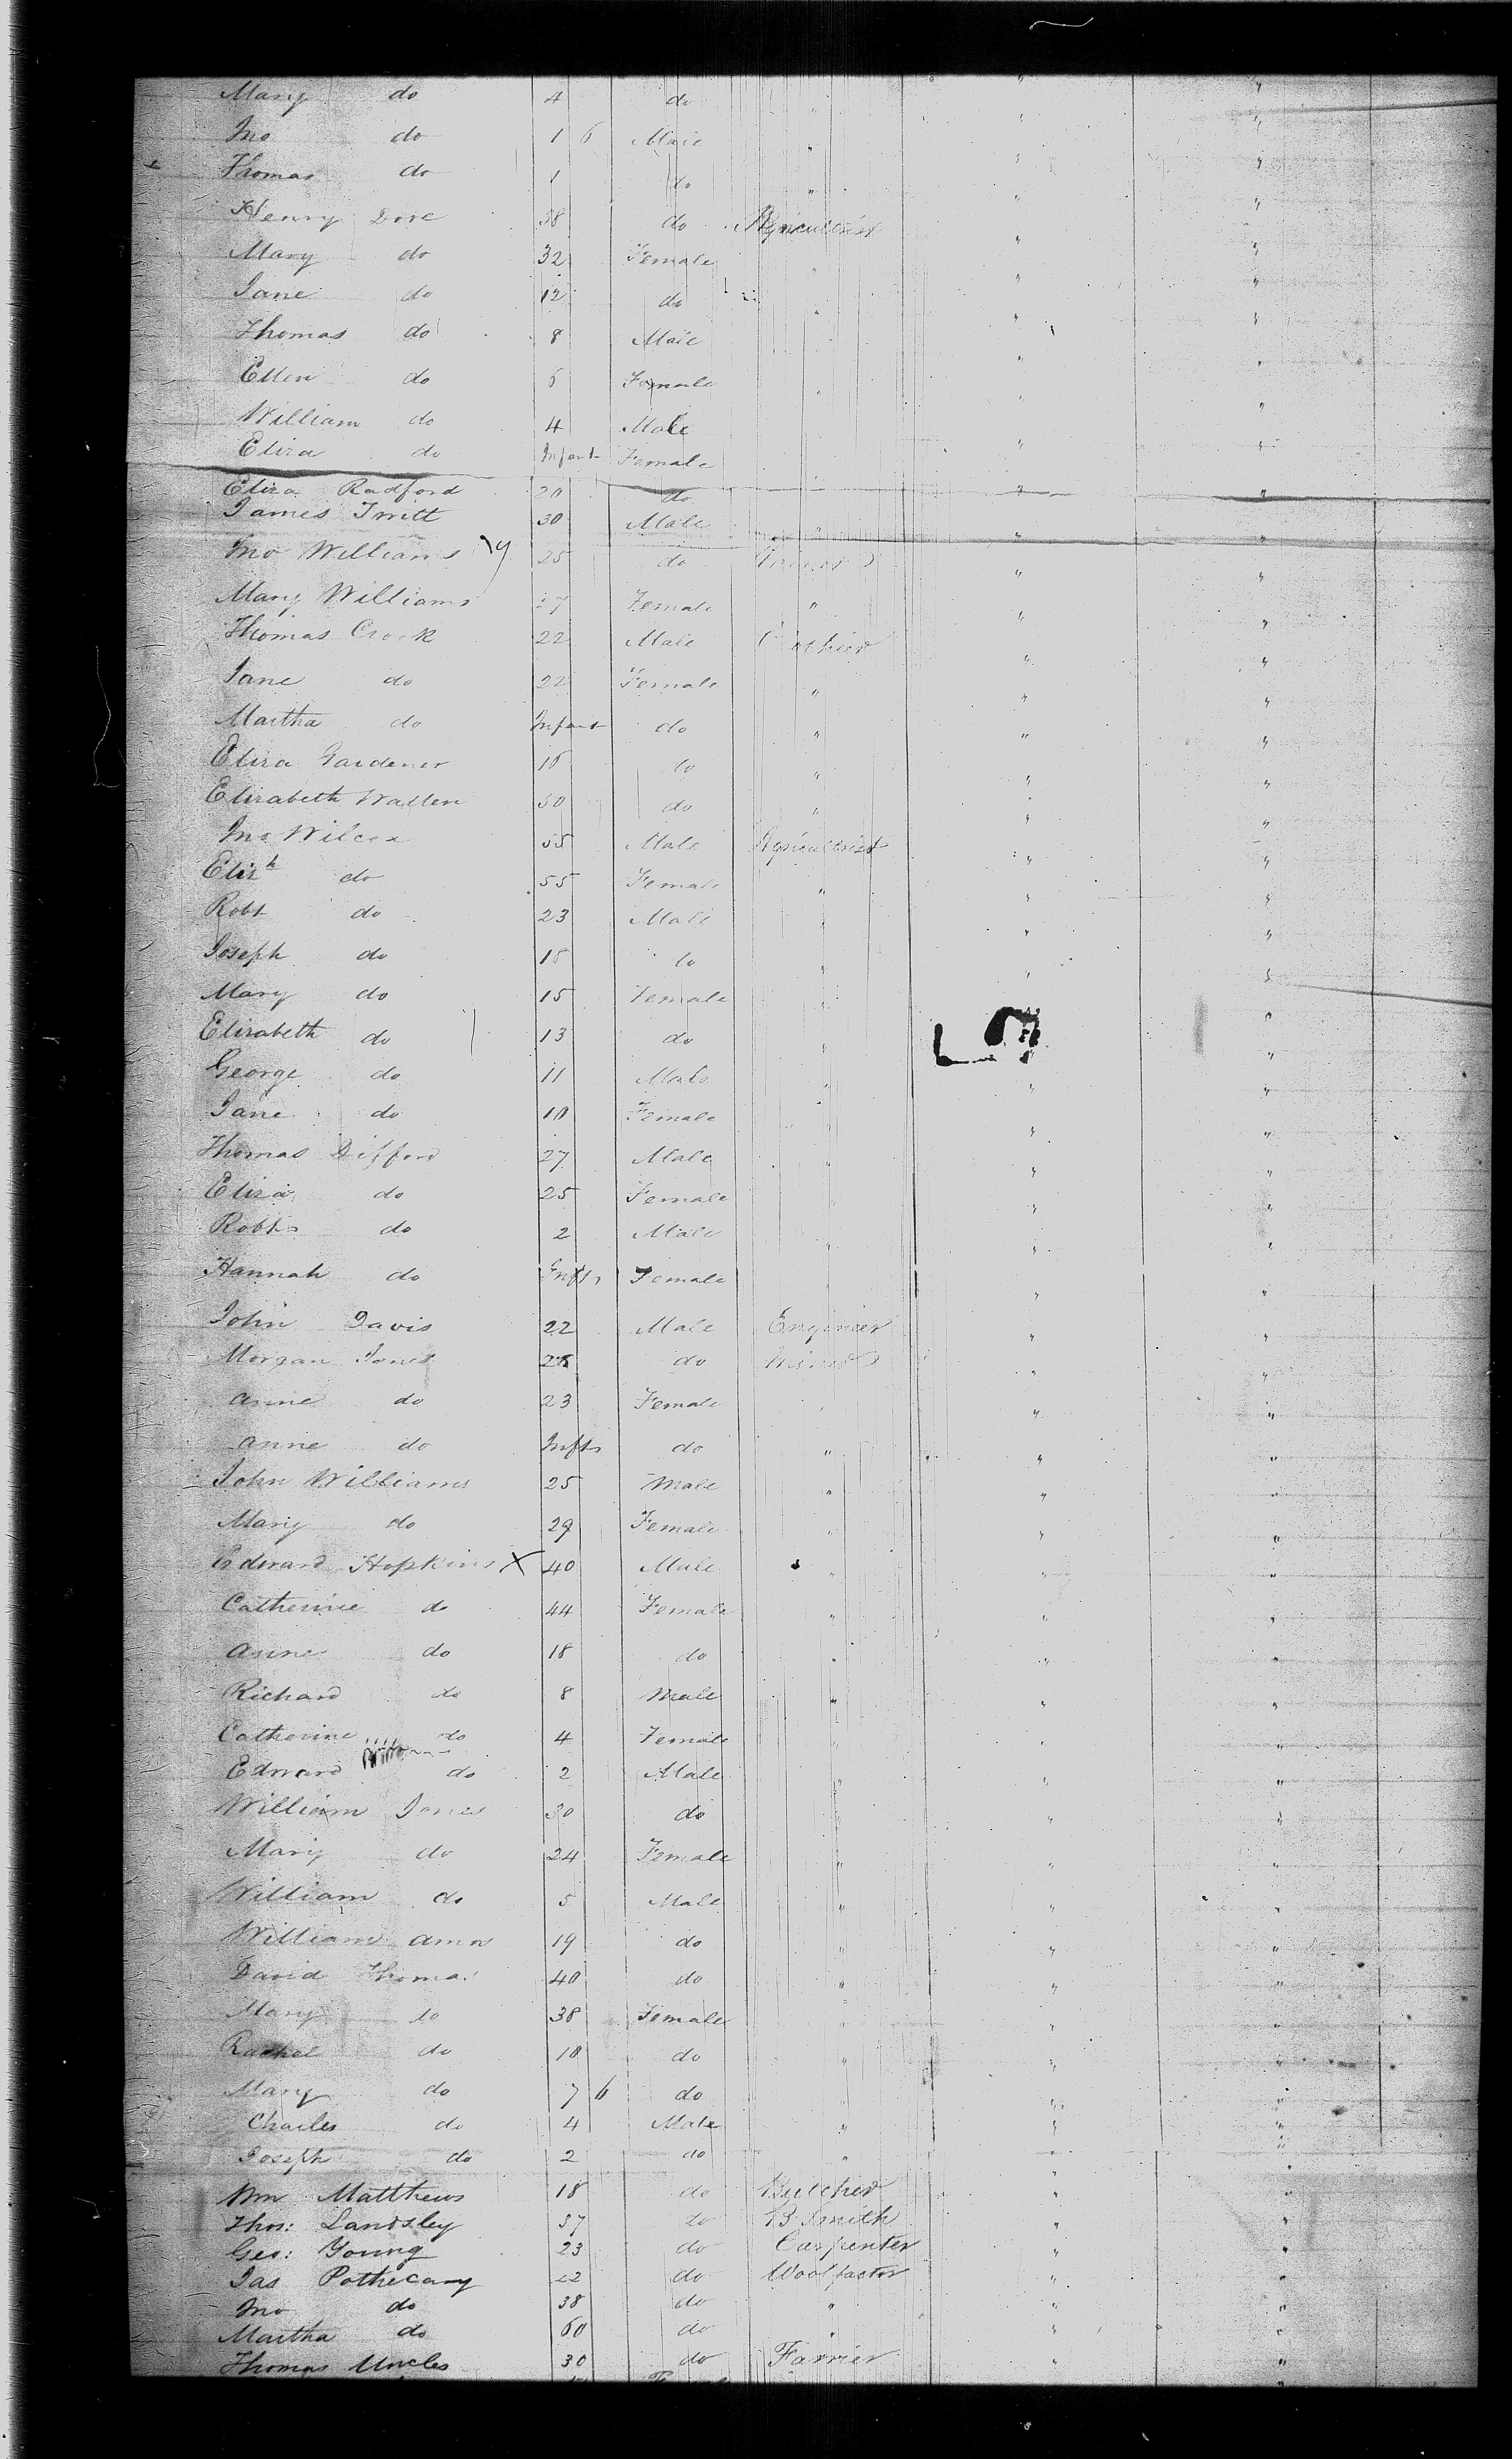 Mary do 4 do " " "
Jno do 1 6 Male " " "
Thomas do 1 do " " "
Henry Dore 38 do Agriculturist " "
Mary do 32 Female " " "
Jane do 12 do " " "
Thomas do 8 Male " " "
Ellen do 6 Female " " "
William do 4 Male " " "
Eliza do Infant Female " " "
Eliza Radford 20 do " " "
James 30 Male " " "
Jno Williams 25 do " "
Mary Williams 27 Female " " "
Thomas Crook 22 Male Clothier " "
Jane do 22 Female " " "
Martha do Infant do " " "
Eliza Gardener 16 do " " "
Elizabeth Watten 50 do " " "
Jno Wilcox 55 Male Agriculturist " "
Elizh do 55 Female " " "
Robt do 23 Male " " "
Joseph do 18 do " " "
Mary do 15 Female " " "
Elizabeth do 13 do " " "
George do 11 Male " " "
Jane do 10 Female " " "
Thomas Difford 27 Male " " "
Eliza do 25 Female " " "
Robt do 2 Male " " "
Hannah do Infts Female " "
John Davis 22 Male Engineer " "
Morgan Jones do Miner " "
Anne do 23 Female " " "
Anne do Infts do " " "
John Williams 25 Male " " "
Mary do 29 Female " " "
Edward Hopkins X 40 Male " " "
Catherine do 44 Female " " "
Anne do 18 do " " "
Richard do 8 Male " " "
Catherine do 4 Female " " "
Edward do 2 Male " " "
William Jones 30 do " " "
Mary do 24 Female " " "
William do 5 Male " " "
William Amos 19 do " " "
David Thomas 40 do " " "
Mary do 38 Female " " "
Rachel do 10 do " " "
Mary do 7 6 do " " "
Charles do 4 Male " " "
Joseph do 2 do " " "
Wm Matthews 18 do Butcher " "
Thos: Landsley 37 do B Smith " "
Geo: Young 23 do Carpenter " "
Jas Pothecary 22 do Woolfactor " "
Jno do 38 do " " "
Martha do 60 do " " "
Thomas Uncles 30 do Farrier " "